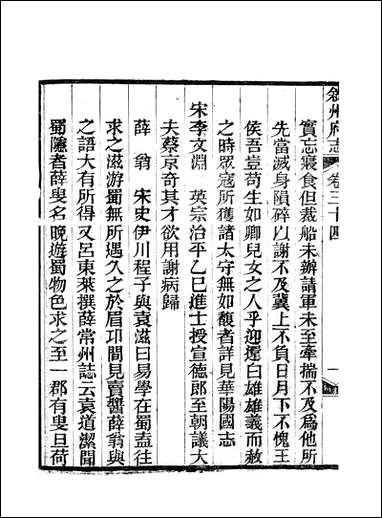 叙州府志 卷三十四
實忘寢食但裁船未辦請軍未至牽揣不及爲他所
先當滅身隕碎以謝不及冀上不負日月下不愧王
侯吾豈苟生如卿兒女之人乎迎遣白雄雄義而赦
之時眾寇所獲諸太守無如馥者詳見華陽國志
宋李文淵 英宗治平乙巳進士授宣德郎至朝議大
夫蔡京奇其才欲用謝病歸
薛翁 宋史伊川程子與袁滋曰易學在蜀盍往
求之滋游蜀無所遇久之於眉卭間見賣醬薛翁與
之語大有所得又呂東萊撰薛常州誌云袁道潔聞
蜀隱者薛叟名晚遊蜀物色求之至一郡有叟旦荷